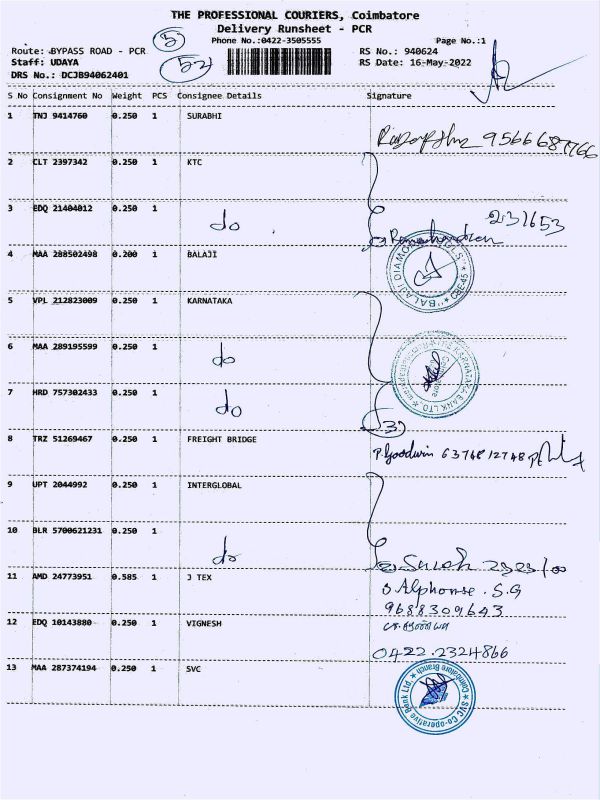 THE PROFESSIONAL COURIERS, Coimbatore
Delivery Runsheet - PCR
Phone No.:0422-3505555
Page No.:1
Route: BYPASS ROAD - PCR
RS No.: 940624
Staff: UDAYA
52
RS Date: 16-May-2022
DRS No.: DCJB94062401
S No Consignment No Weight PCS Consignee Details Signature
1 TNJ 9414760 0.250 1 SURABHI
2 CLT 2397342 0.250 1 KTC
3 EDQ 21404012 0.250 1 do
231653
Ramachandran
4 MAA 288502498 0.200 1 BALAJI
"BALAJI DIAMOND TOOLS" CBE-45
5 VPL 212823009 0.250 1 KARNATAKA
6 MAA 289195599 0.250 1 do
THE KARNATAKA BANK LTD.
7 HRD 757302433 0.250 1 do
3
8 TRZ 51269467 0.250 1 FREIGHT BRIDGE
P. Goodwin
9 UPT 2044992 0.250 1 INTERGLOBAL
10 BLR 5700621231 0.250 1 do
11 AMD 24773951 0.585 1 J TEX
Alphonse . S.G
9688309643
12 EDQ 10143880 0.250 1 VIGNESH
0422.2324866
13 MAA 287374194 0.250 1 SVC
SVC Co-operative Bank Ltd. Coimbatore Branch